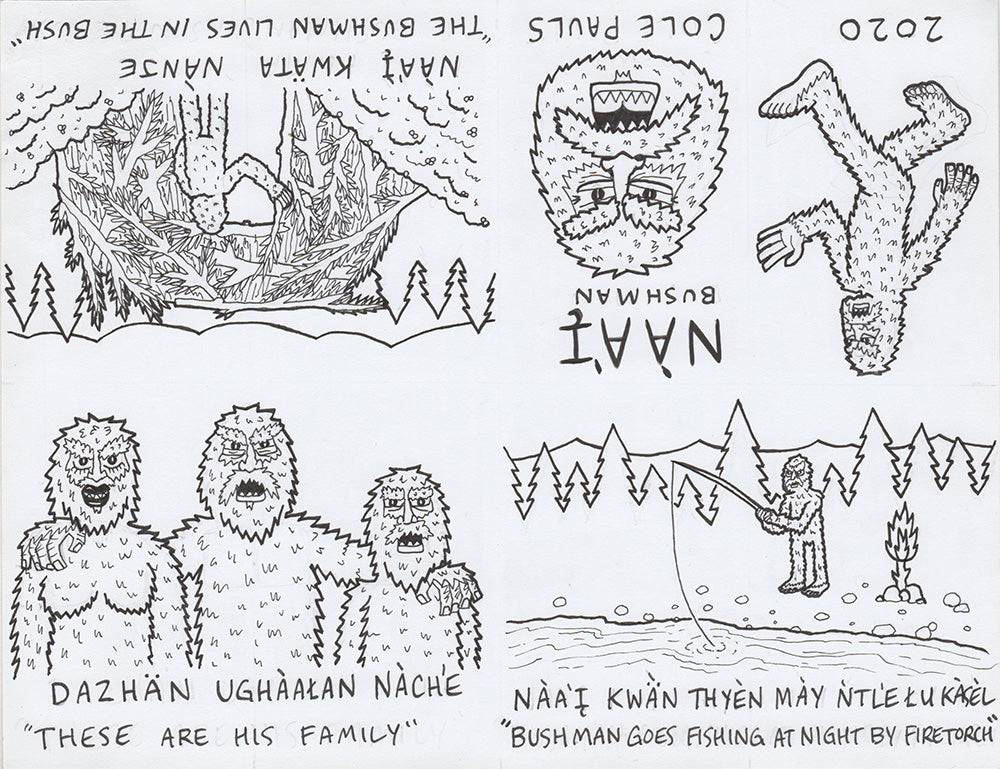 NÀA'Į KWÄTA NÀNJE
"THE BUSHMAN LIVES IN THE BUSH"
NÀA'Į
BUSHMAN
COLE PAULS
2020
DAZHÄN UGHÀAŁAN NÀCH'E
"THESE ARE HIS FAMILY"
NÀA'Į KWÄN THYÈN MÀY ǸTL'E ŁU KÀSÈL
"BUSHMAN GOES FISHING AT NIGHT BY FIRETORCH"